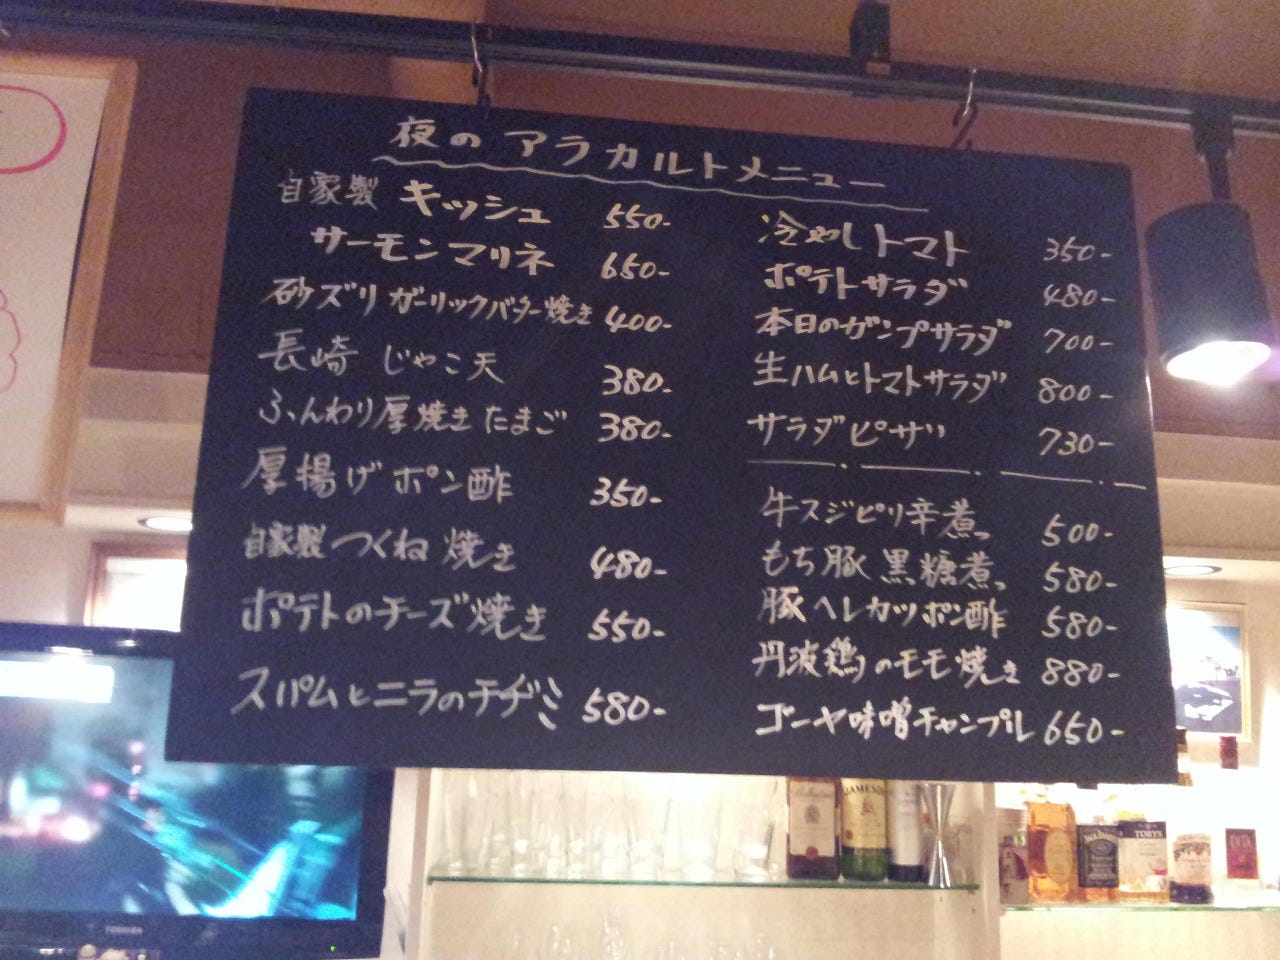 夜のアラカルトメニュー
自家製 キッシュ 550-
サーモンマリネ 650-
砂ズリガーリックバター焼き 400-
長崎 じゃこ天 380-
ふんわり厚焼きたまご 380-
厚揚げポン酢 350-
自家製つくね焼き 480-
ポテトのチーズ焼き 550-
スパムとニラのチヂミ 580-
冷やしトマト 350-
ポテトサラダ 480-
本日のガンプサラダ 700-
生ハムとトマトサラダ 800-
サラダピザ 730-
牛スジピリ辛煮 500-
もち豚 黒糖煮 580-
豚ヘレカツポン酢 580-
丹波鶏のモモ焼き 880-
ゴーヤ味噌チャンプル 650-
TOSHIBA
JAMESON
TORYS